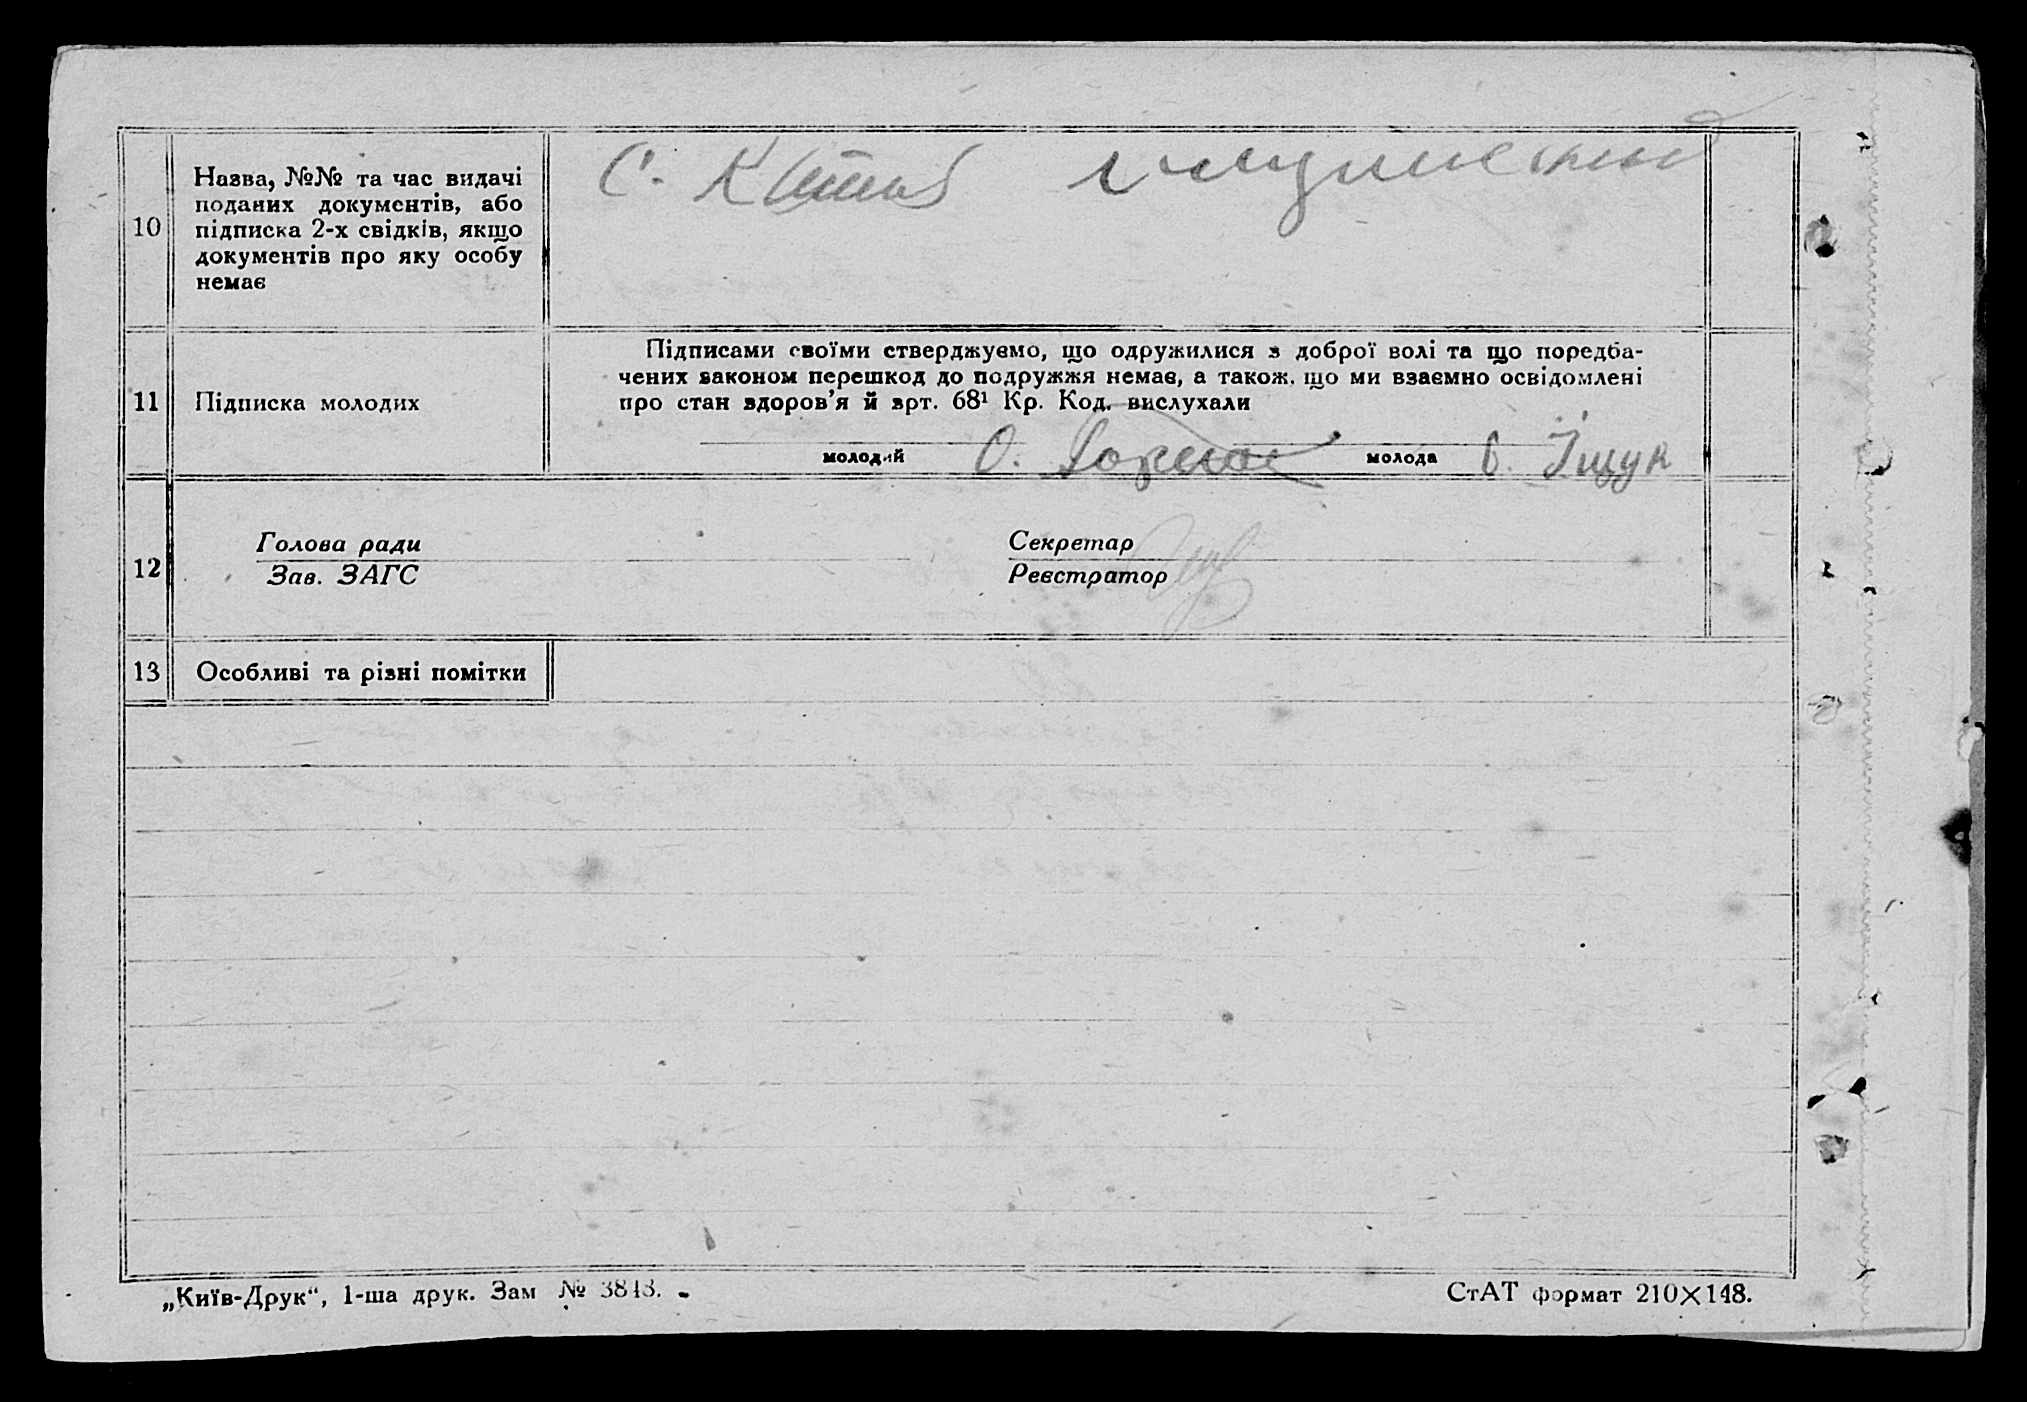 10
Назва, №№ та час видачі
поданих документів, або
підписка 2-х свідків, якщо
документів про яку особу
немає
С.
11
Підписка молодих
Підписами своїми стверджуємо, що одружилися з доброї волі та що поредба-
чених законом перешкод до подружжя немає, а також, що ми взаємно освідомлені
про стан здоров'я й арт. 68¹ Кр. Код. вислухали
молодий О. молода Іщук
12
Голова ради
Зав. ЗАГС
Секретар
Реєстратор
13
Особливі та різні помітки
„Київ-Друк“, 1-ша друк. Зам № 3843.
СтАТ формат 210×148.